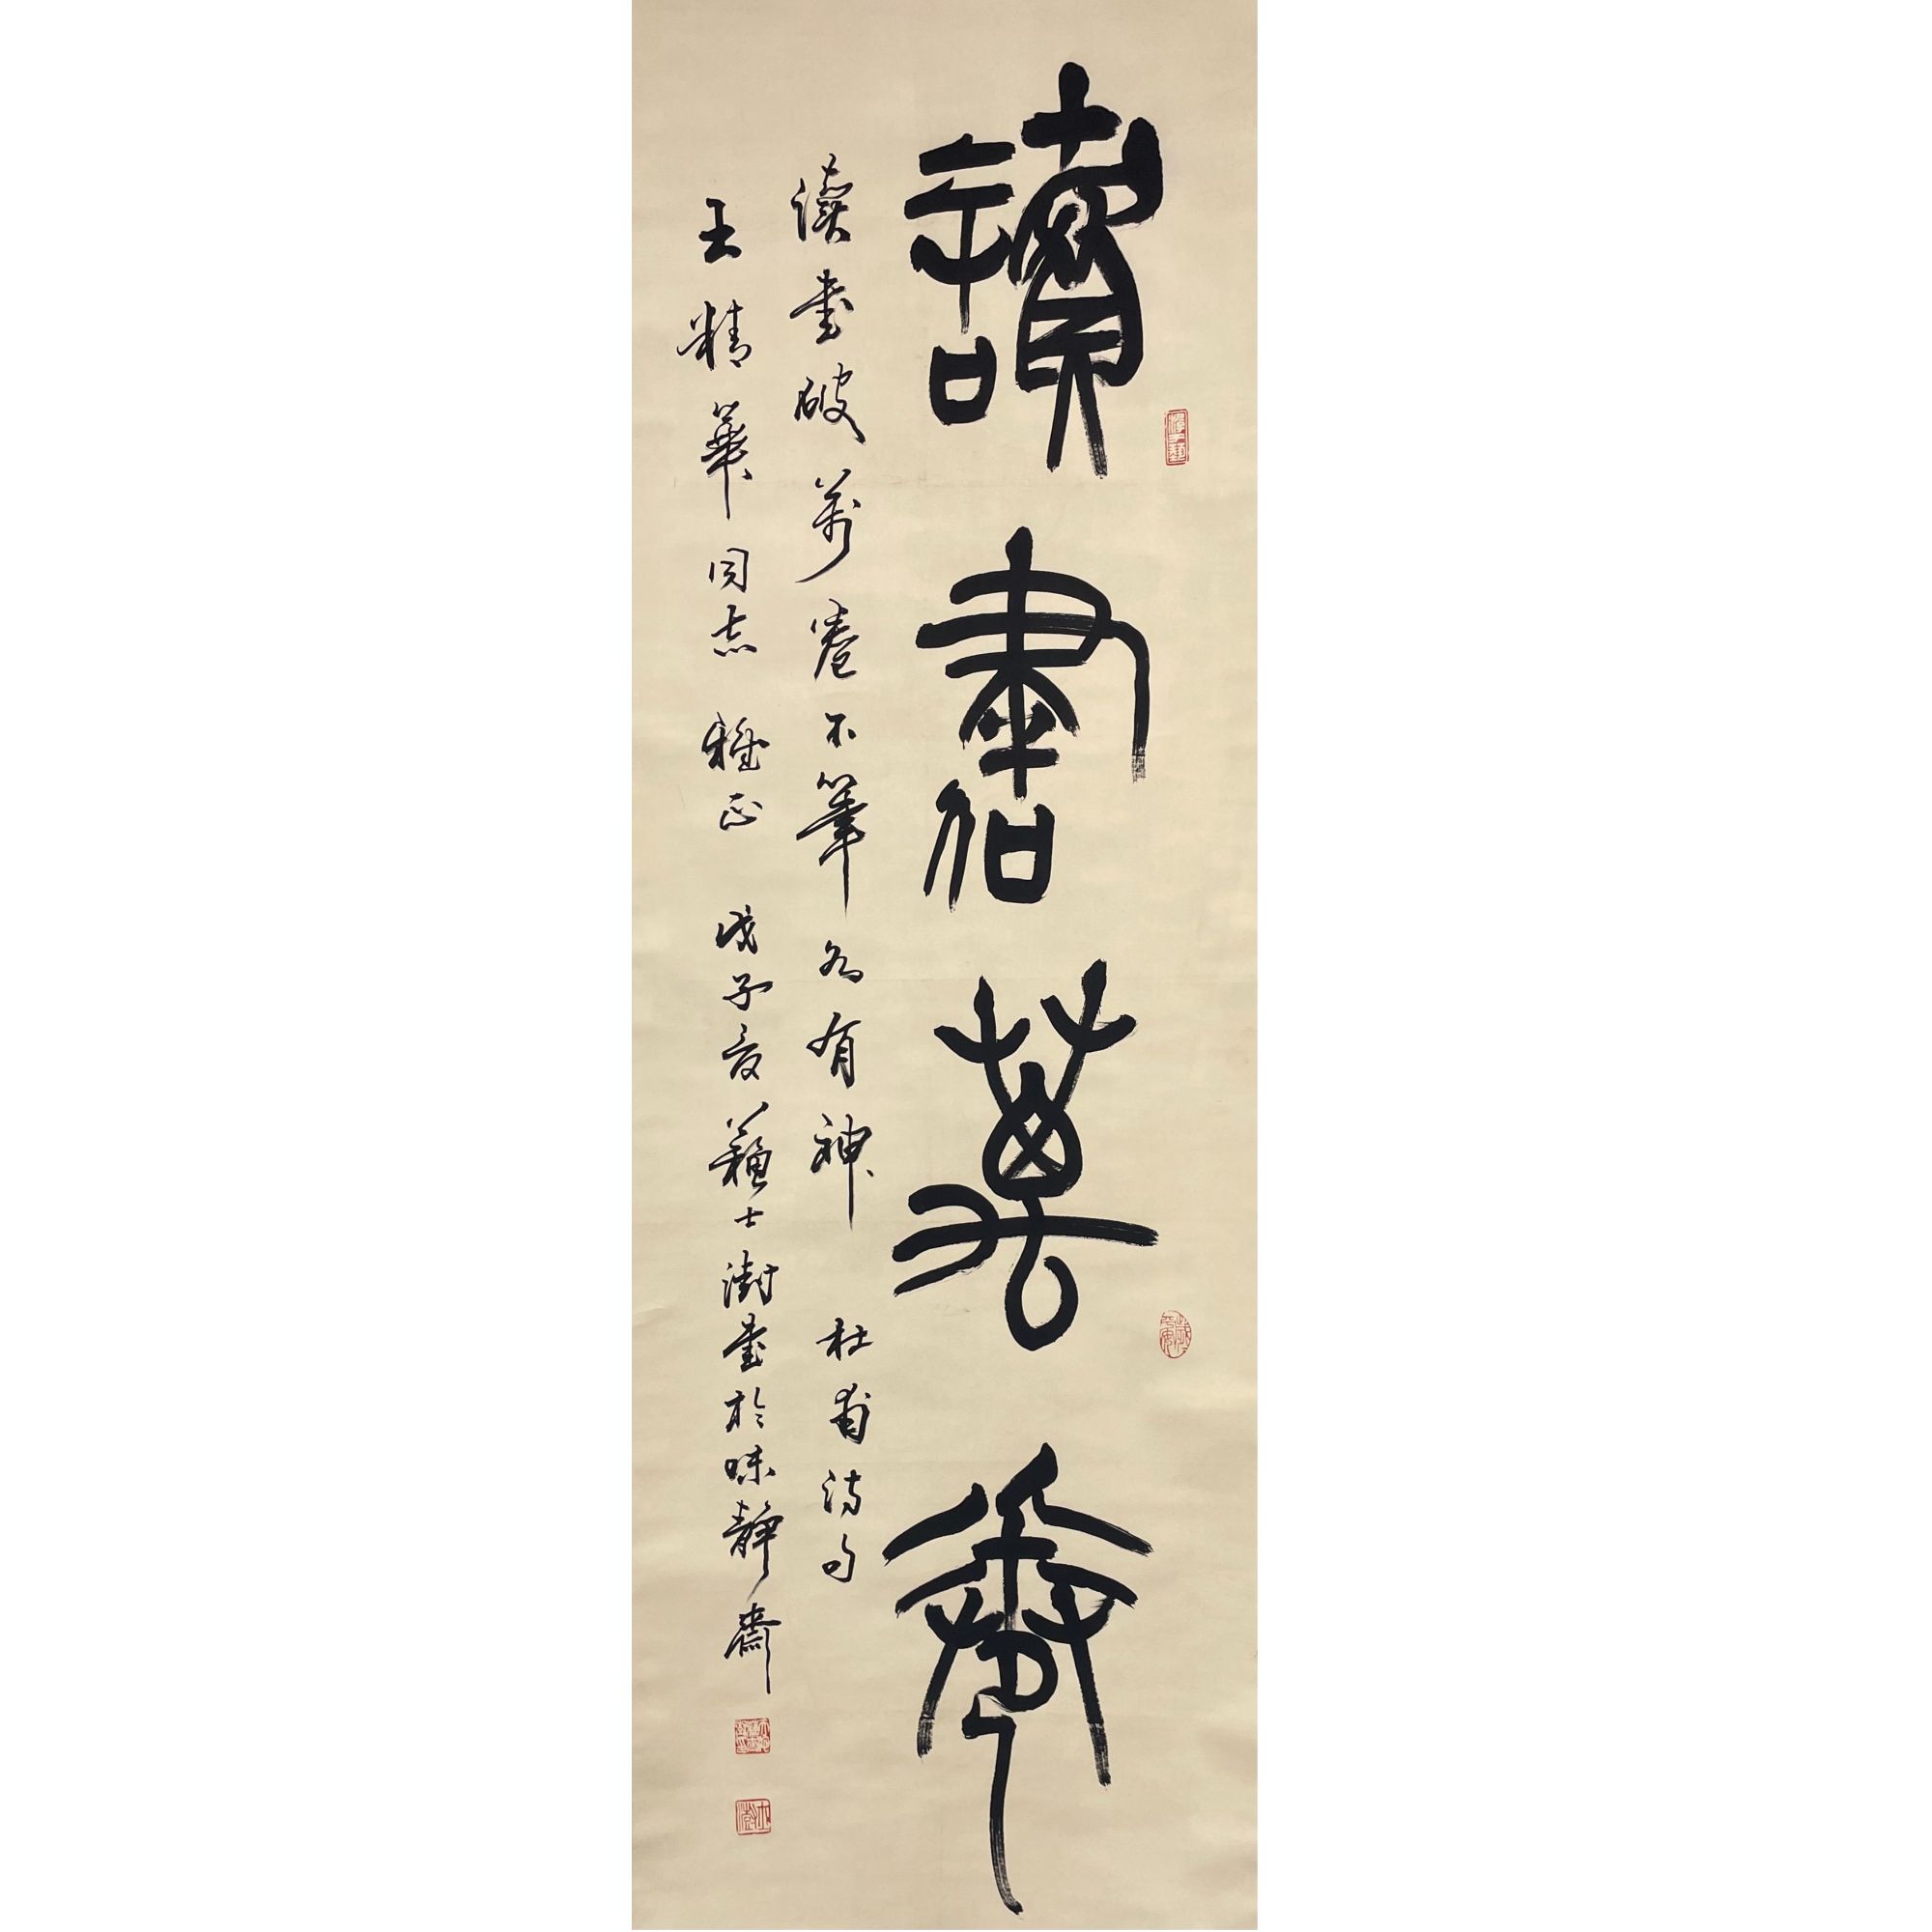 讀書萬卷
讀書破萬卷下筆如有神 杜甫詩句
王精華同志 雅正 戊子夏蘇士澍書於味靜齋